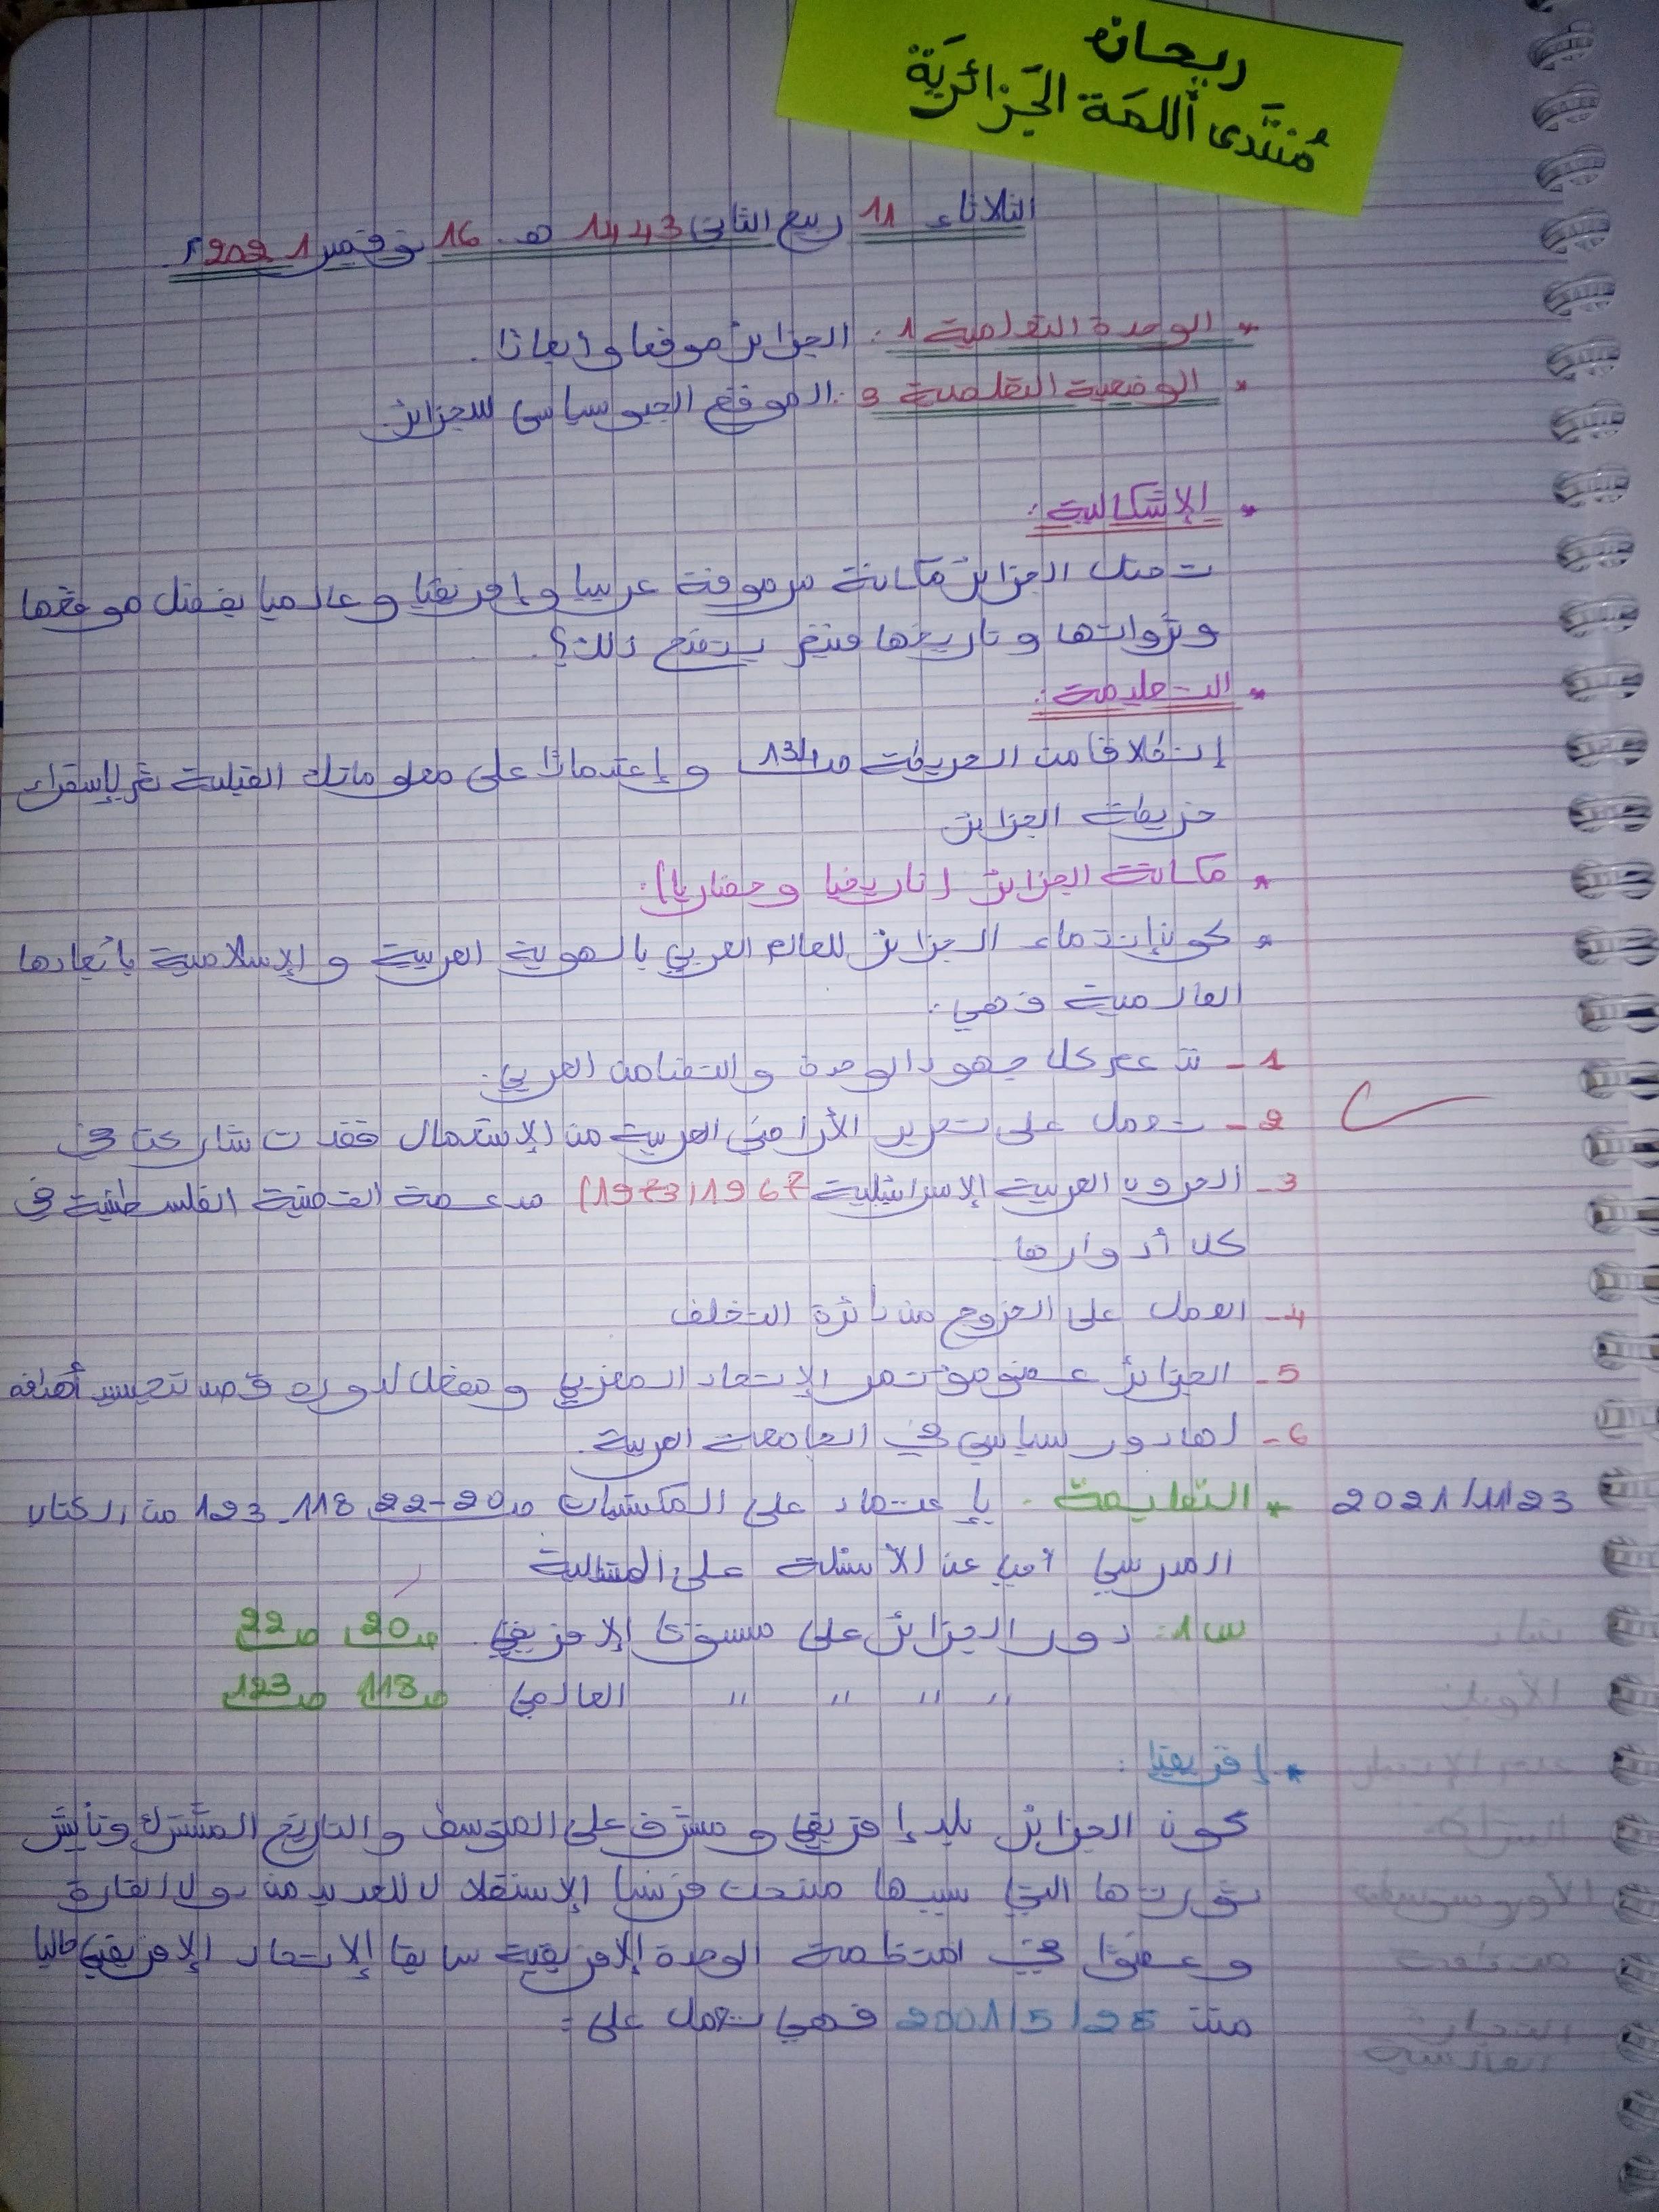 ريحانة
مُنتَدى اللمَة الجَزائريَة
الثلاثاء 11 ربيع الثاني 1443 هـ. 16 نوفمبر 2021م
* الوحدة التعلمية 1: الجزائر موقعا وأبعادا.
* الوضعية التعلمية 3: الموقع الجيوسياسي للجزائر.
* الإشكالية:
تحتل الجزائر مكانة مرموقة عربيا وإفريقيا وعالميا بفضل موقعها
وثرواتها وتاريخها فيتم يتضح ذلك؟
* التعليمة:
إنطلاقا من الخريطة ص134 وإعتمادا على معلوماتك القبلية قم بإستقراء
خريطة الجزائر
* مكانة الجزائر (تاريخيا وحضاريا):
* كون إنتماء الجزائر للعالم العربي بالهوية العربية والإسلامية بأبعادها
العالمية فهي:
1- تدعم كل جهود الوحدة والتضامن العربي.
2- تعمل على تحرير الأراضي العربية من الإستعمال فقد شاركت في
3- الحروب العربية الإسرائيلية 1967 (1973) مدعمة القضية الفلسطنية في
كل أدوارها
4- العمل على الخروج من دائرة التخلف
5- الجزائر عضو مؤتمر الإتحاد المغربي ومفعل لدوره قصد تجسيد أهدافه
6- لها دور سياسي في الجامعة العربية.
2021/11/23 * التعليمة. بإعتماد على المكتسبات ص20-22، 118-123 من الكتاب
المدرسي أجب عن الأسئلة على المتتالية
س1: دور الجزائر على مستوى الإفريقي. ص20، ص22
" " " " العالمي ص118 ص123
* إفريقيا:
كون الجزائر بلد إفريقي ومشرف على المتوسط والتاريخ المشترك وتأثير
ثورتها التي بسببها منحت فرنسا الإستقلال للعديد من دول القارة
وعضوا في منظمة الوحدة الإفريقية سابقا الإتحاد الإفريقي حاليا
منذ 2001/5/26 فهي تعمل على: